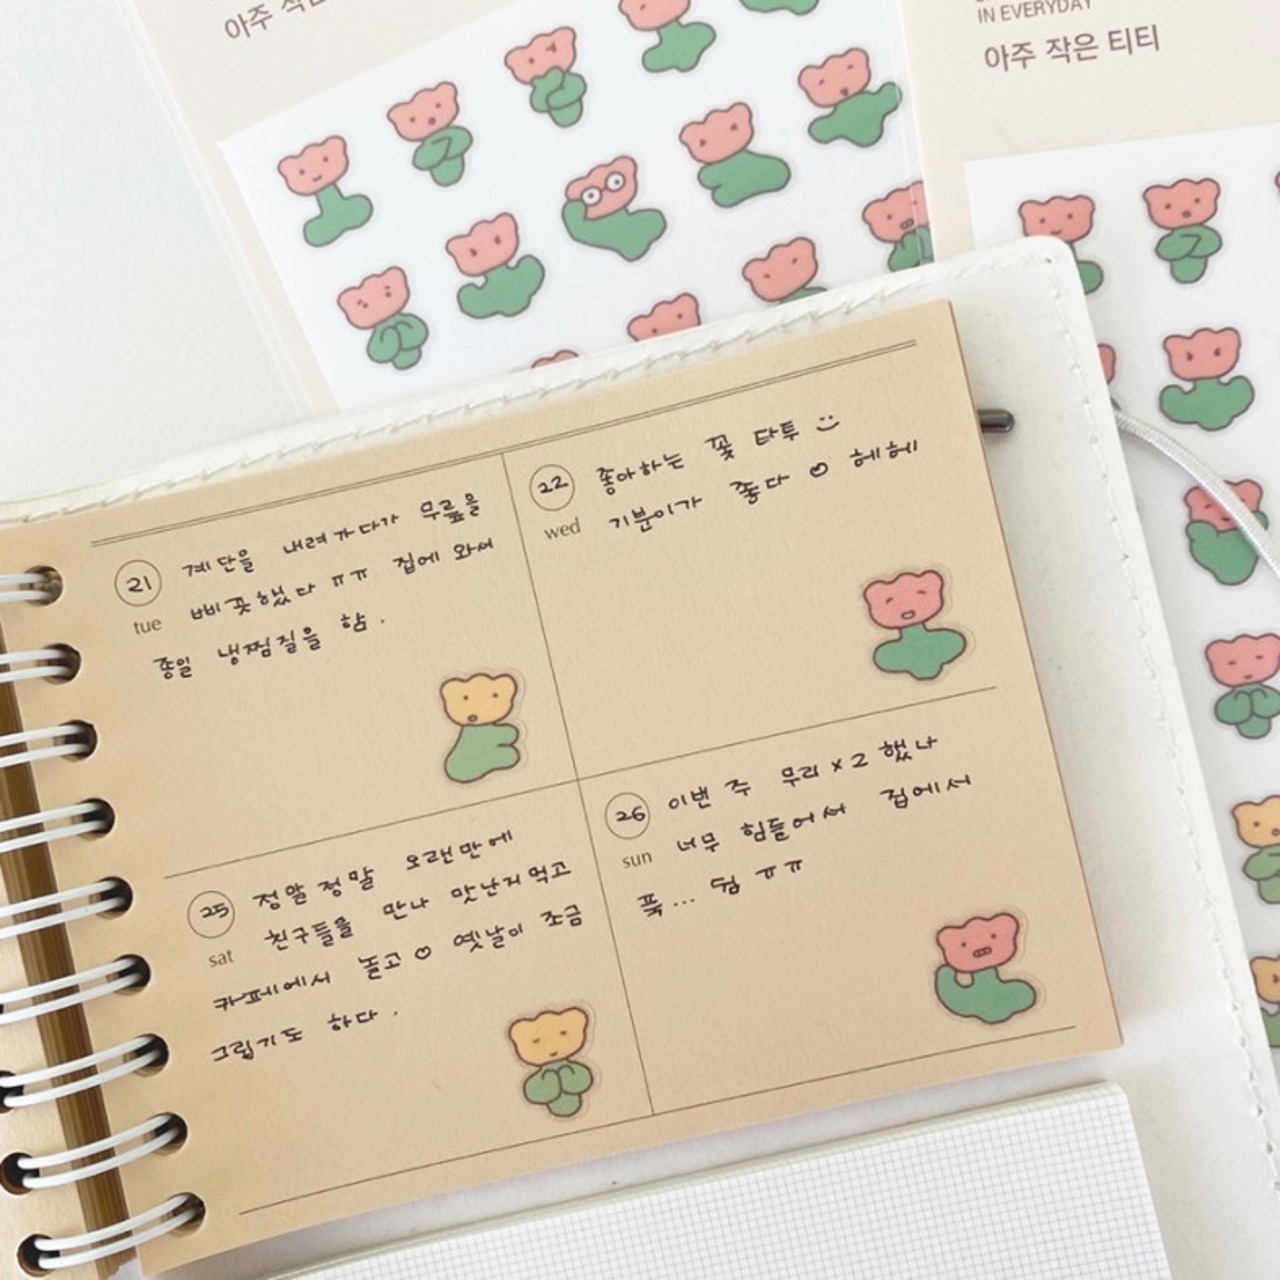 아주 작
IN EVERYDAY
아주 작은 티티
21
tue
계단을 내려가다가 무릎을
삐끗했다 ㅠㅠ 집에 와서
종일 냉찜질을 함.
22
wed
좋아하는 꽃 타투
기분이가 좋다 ♡ 헤헤
25
sat
정말 정말 오랜만에
친구들을 만나 맛난거 먹고
카페에서 놀고 ♡ 옛날이 조금
그립기도 하다.
26
sun
이번 주 무리×2 했나
너무 힘들어서 집에서
푹... 쉼 ㅠㅠ